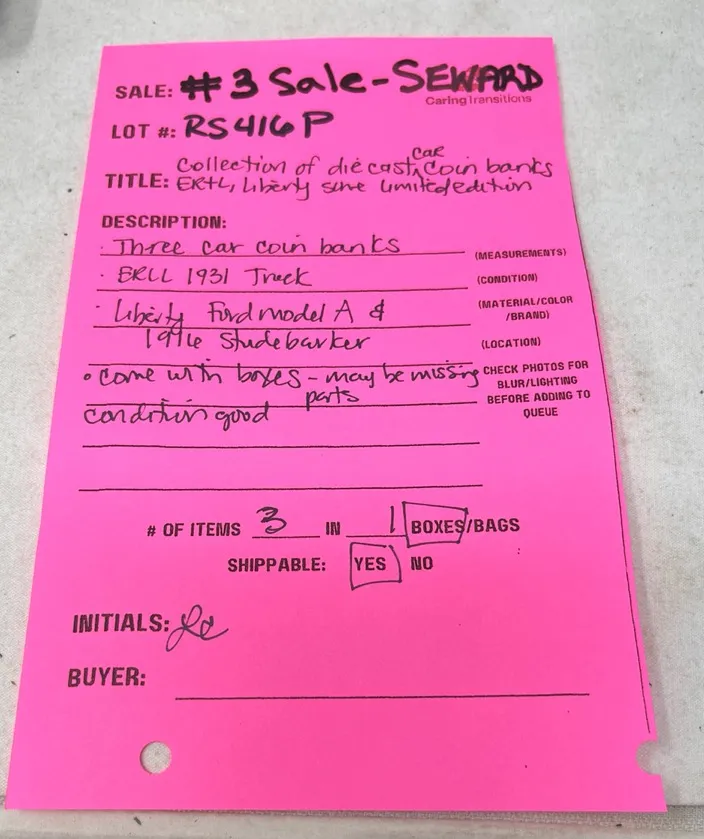 SALE: #3 Sale-SEWARD
Caring Transitions
LOT #: RS416P
car
TITLE: Collection of diecast coin banks
ERtL, Liberty sure limited edition
DESCRIPTION:
· Three car coin banks
(MEASUREMENTS)
· ERLL 1931 Truck
(CONDITION)
· Liberty Ford model A &
(MATERIAL/COLOR
/BRAND)
1916 Studebarker
(LOCATION)
• come with boxes - may be missing
parts
CHECK PHOTOS FOR
BLUR/LIGHTING
BEFORE ADDING TO
QUEUE
condition good
# OF ITEMS 3 IN 1 BOXES/BAGS
SHIPPABLE: YES NO
INITIALS:
BUYER: